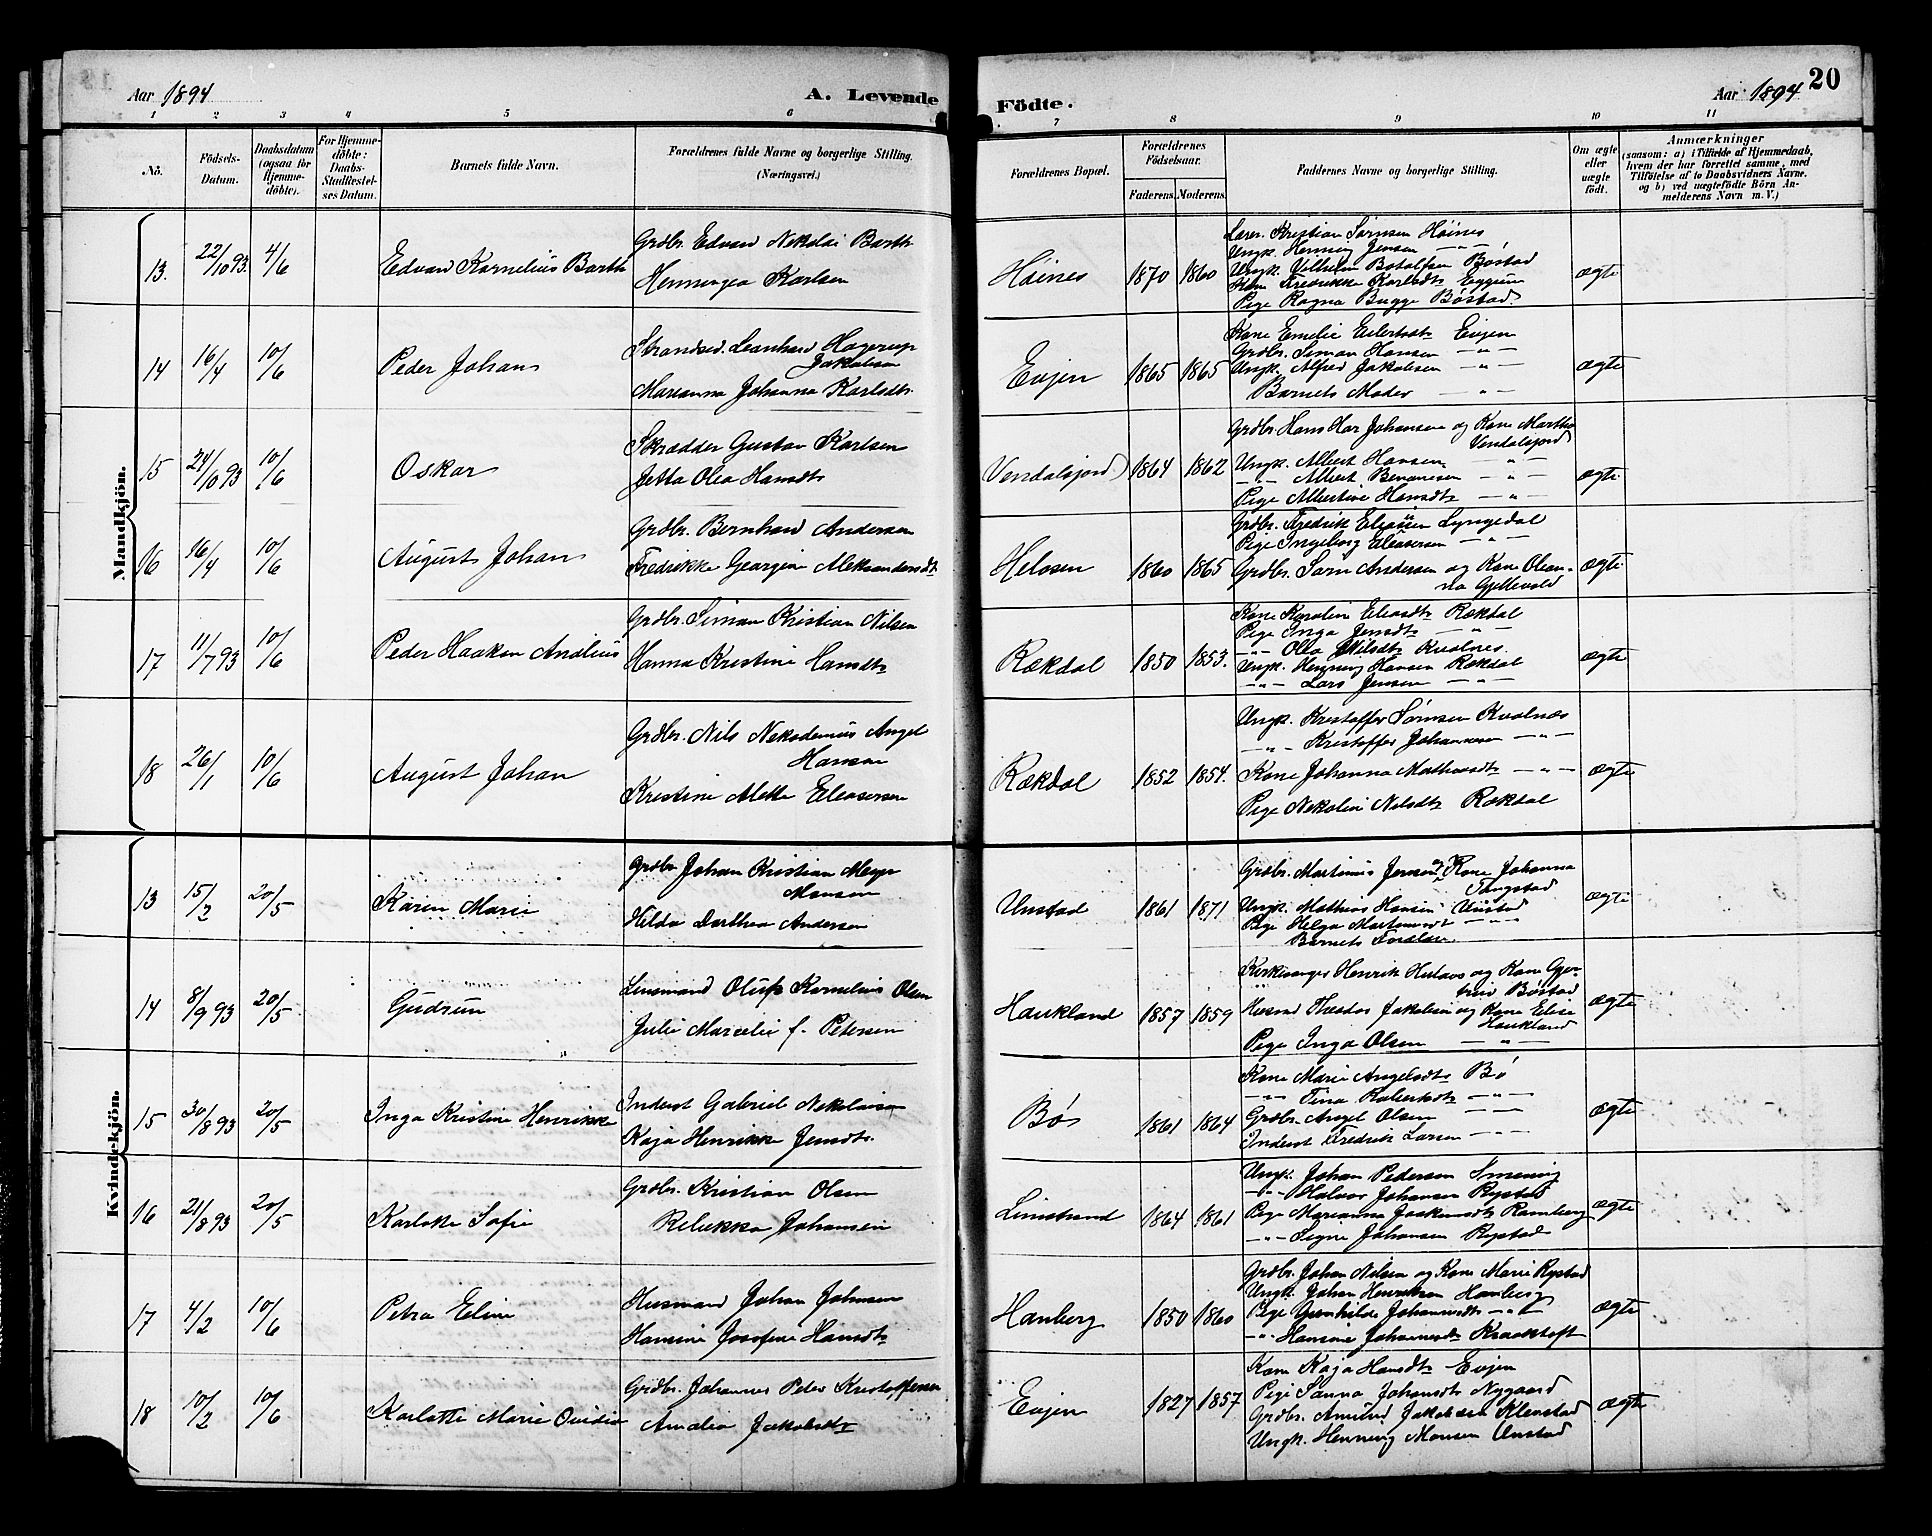 Aar 1894
A. Levende
Födte.
Aar 1894
20
1 2 3 4 5 6 7 8 9 10 11
No.
Födsels-Datum.
Daabsdatum (ogsaa for Hjemme-döbte).
For Hjemme-döbte: Daabs-Stadfæstel-ses Datum.
Barnets fulde Navn.
Forældrenes fulde Navne og borgerlige Stilling. (Næringsvei.)
Forældrenes Bopæl.
Forældrenes Födselsaar.
Faderens. Moderens.
Faddernes Navne og borgerlige Stilling.
Om ægte eller uægte födt.
Anmærkninger
(saasom: a) i Tilfælde af Hjemmedaab,
hvem der har forrettet samme, med
Tilföielse af to Daabsvidners Navne.
og b) ved uægtefödte Börn An-
melderens Navn m. V.)
Mandkjön.
13. 22/10 93. 4/6 Edvan Kornelius Barth
Grdbr. Edvan Nikolai Barth
Henningea Karlsen
Höines 1870 1860
Lærer. Kristian Sörnsen Höines
Ungk. Henning Jensen -"-
Ungk. Vilhelm Botolfsen Böstad
Kone Fredrikke Karlsdtr Eggum
Pige Ragna Bugge Böstad
ægte
14 16/4 10/6 Peder Johan
Strandsid. Leonhard Hagerup
Jakobsen
Marianna Johanna Karlsdtr.
Evjen 1865 1865
Kone Emelie Eilertsdtr Evjen
Grdbr. Simon Hansen -"-
Ungk. Alfred Jakobsen -"-
Barnets Moder -"-
ægte
15 24/10 93 10/6 Oskar
Skrædder Gustav Karlsen
Jetta Olea Hansdtr
Vendalsjord 1864 1862
Grdbr. Hans Johansen og Kone Martha
Vendalsjord
Ungk. Albert Hansen -"-
-"- Albert -"-
Pige Albertine Hansdtr -"-
ægte
16 16/4 10/6 August Johan
Grdbr. Bernhard Andersen
Fredrikke Georgine Aleksandersdtr
Helosen 1860 1865
Grdbr. Fredrik Eliassen Lyngedal
Pige Ingeborg Eleasersen -"-
Grdbr. Sörn Andersen og Kone Olean-
na Gjellevold
ægte
17 11/7 93 10/6 Peder Haakon Andleus
Grdbr. Simon Kristian Nilsen
Hanna Kristine Hansdtr
Rækdal 1850 1853.
Kone Karoline Eleasdtr Rækdal
Pige Inga Jensdtr -"-
-"- Olea Nilsdtr Kvalnes.
Ungk. Henning Hansen Rækdal
-"- Lars Jensen -"-
ægte
18 26/1 10/6 August Johan
Grdbr. Nils Nekodemus Angel
Hansen
Kristine Mette Eleasersen
Rækdal 1852 1854.
Ungk. Kristoffer Sörnsen Kvalnæs
-"- Kristoffer Johannesen -"-
Kone Johanna Mathiasdtr -"-
Pige Nekoline Nilsdtr Rækdal
ægte
Kvindekjön.
13 15/2 20/5 Karen Marie
Grdbr. Johan Kristian Meyer
Monsen
Hilda Dorthea Andersen
Unstad 1861 1871
Grdbr. Martinus Jensen og Kone Johanna
Tangstad
Ungk. Mathias Hansen Unstad
Pige Helga Martinusdt -"-
Barnets Forældre
ægte
14 8/9 93 20/5 Gudrun
Linsmand Oluf Kornelius Olsen
Julie Marcelie f. Petersen
Haukland 1857 1859
Kirkesanger Henrik og Kone Gjer-
trud Böstad
Husmd Theodor Jakobsen og Kone Elise
Haukland
Pige Inga Olsen -"-
ægte
15 30/8 93 20/5 Inga Kristine Henrikke
Inderst Gabriel Nikolaisen
Kaja Henrikke Jensdtr.
Bö 1861 1864
Kone Marie Angelsdtr Bö
-"- Tina Robertsdtr -"-
Grdbr. Angel Olsen -"-
Inderst Fredrik Larsen -"-
ægte
16 21/8 93 20/5 Karlotte Sofie
Grdbr. Kristian Olsen
Rebekka Johansen
Limstrand 1864 1861
Ungk. Johan Pedersen Smenig
-"- Halvor Johansen Rystad
Pige Marianna Joakimsdtr Ramberg
-"- Signe Johansen Rystad
ægte
17 4/2 10/6 Petra Eline
Husmand Johan Johnsen
Hansine Josefine Hansdtr
Hanberg 1850 1860
Grdbr. Johan Nilsen og Kone Marie Rystad
Ungk. Johan Henriksen Hanberg
Pige Gunhilde Johannesdtr -"-
-"- Hansine Johannesdtr Kraaktoft
ægte
18 10/2 10/6 Karlotte Marie Ovidia
Grdbr. Johannes Peder Kristoffersen
Amalia Jakobsdtr
Evjen 1827 1857
Kone Kaja Hansdtr Evjen
Pige Sanna Johansdtr Nygaard
Grdbr. Amund Jakobsen Klenstad
Ungk. Henning Monsen Unstad
ægte